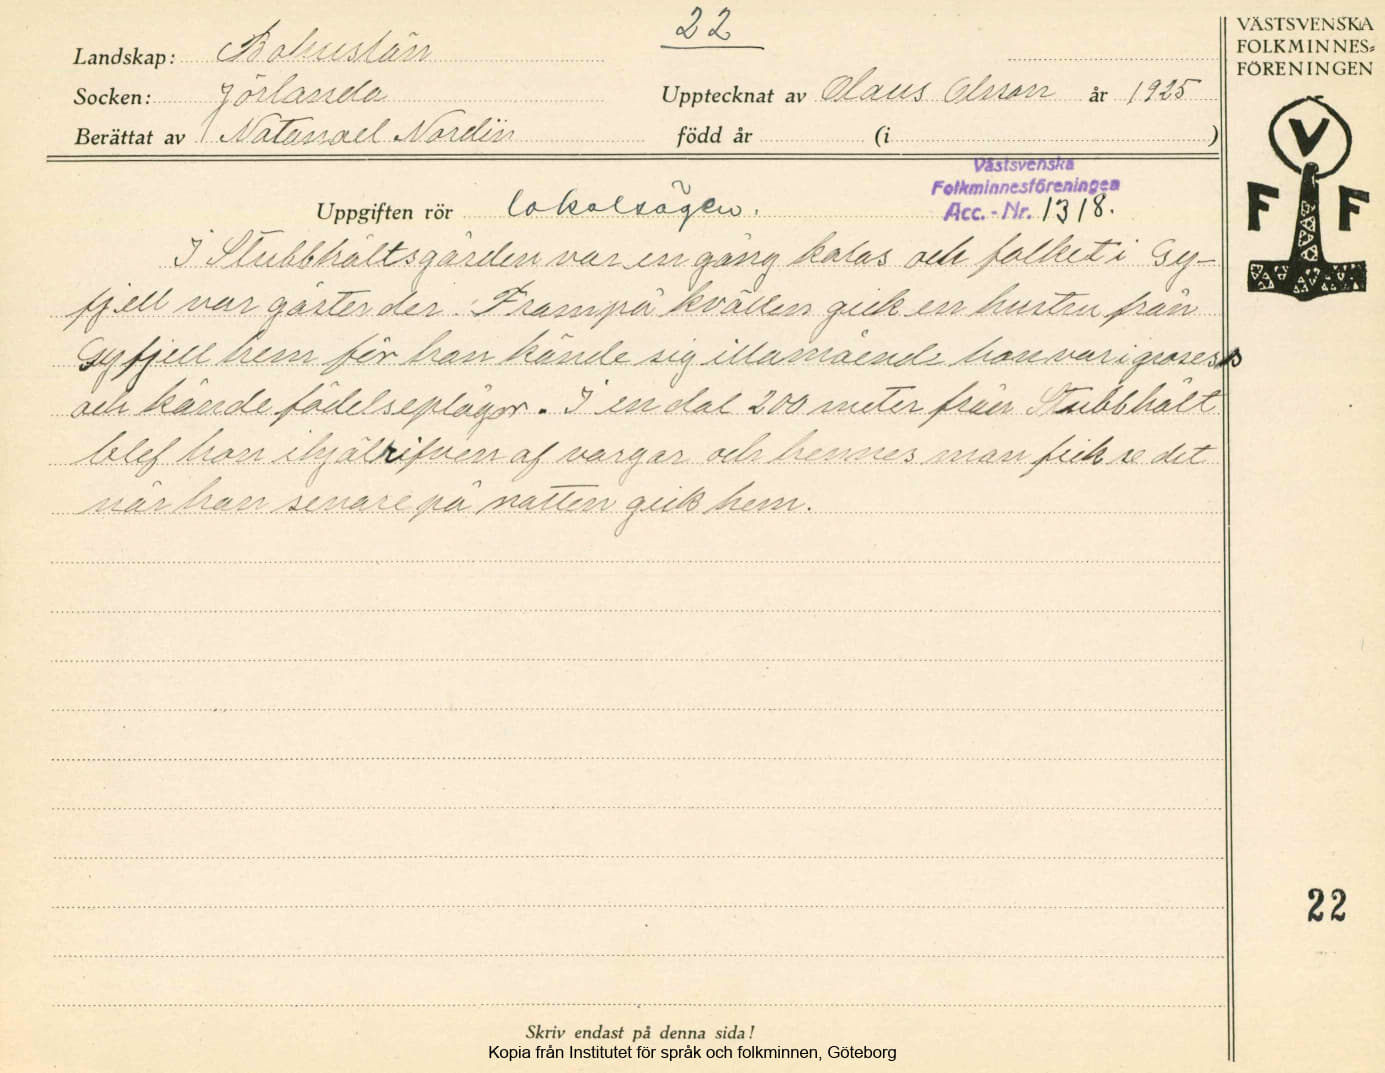 22
VÄSTSVENSKA
FOLKMINNES=
FÖRENINGEN
Landskap: Bohuslän
Socken: Jörlanda
Upptecknat av Olaus Olsson år 1925
Berättat av Natanael Nordin född år (i )
V
F F
Västsvenska
Folkminnesföreningen
Acc. - Nr. 1318.
Uppgiften rör lokalsägen.
I Stubbhältsgården var en gång kalas och folket i Gy-
fjell var gäster der. Frampå kvällen gick en hustru från
Gyfjell hem för hon kände sig illamående hon var i grosess
och kände födelseplågor. I en dal 200 meter från Stubbhält
blef hon ihjälrifven af vargar och hennes man fick se det
när han senare på natten gick hem.
22
Skriv endast på denna sida!
Kopia från Institutet för språk och folkminnen, Göteborg